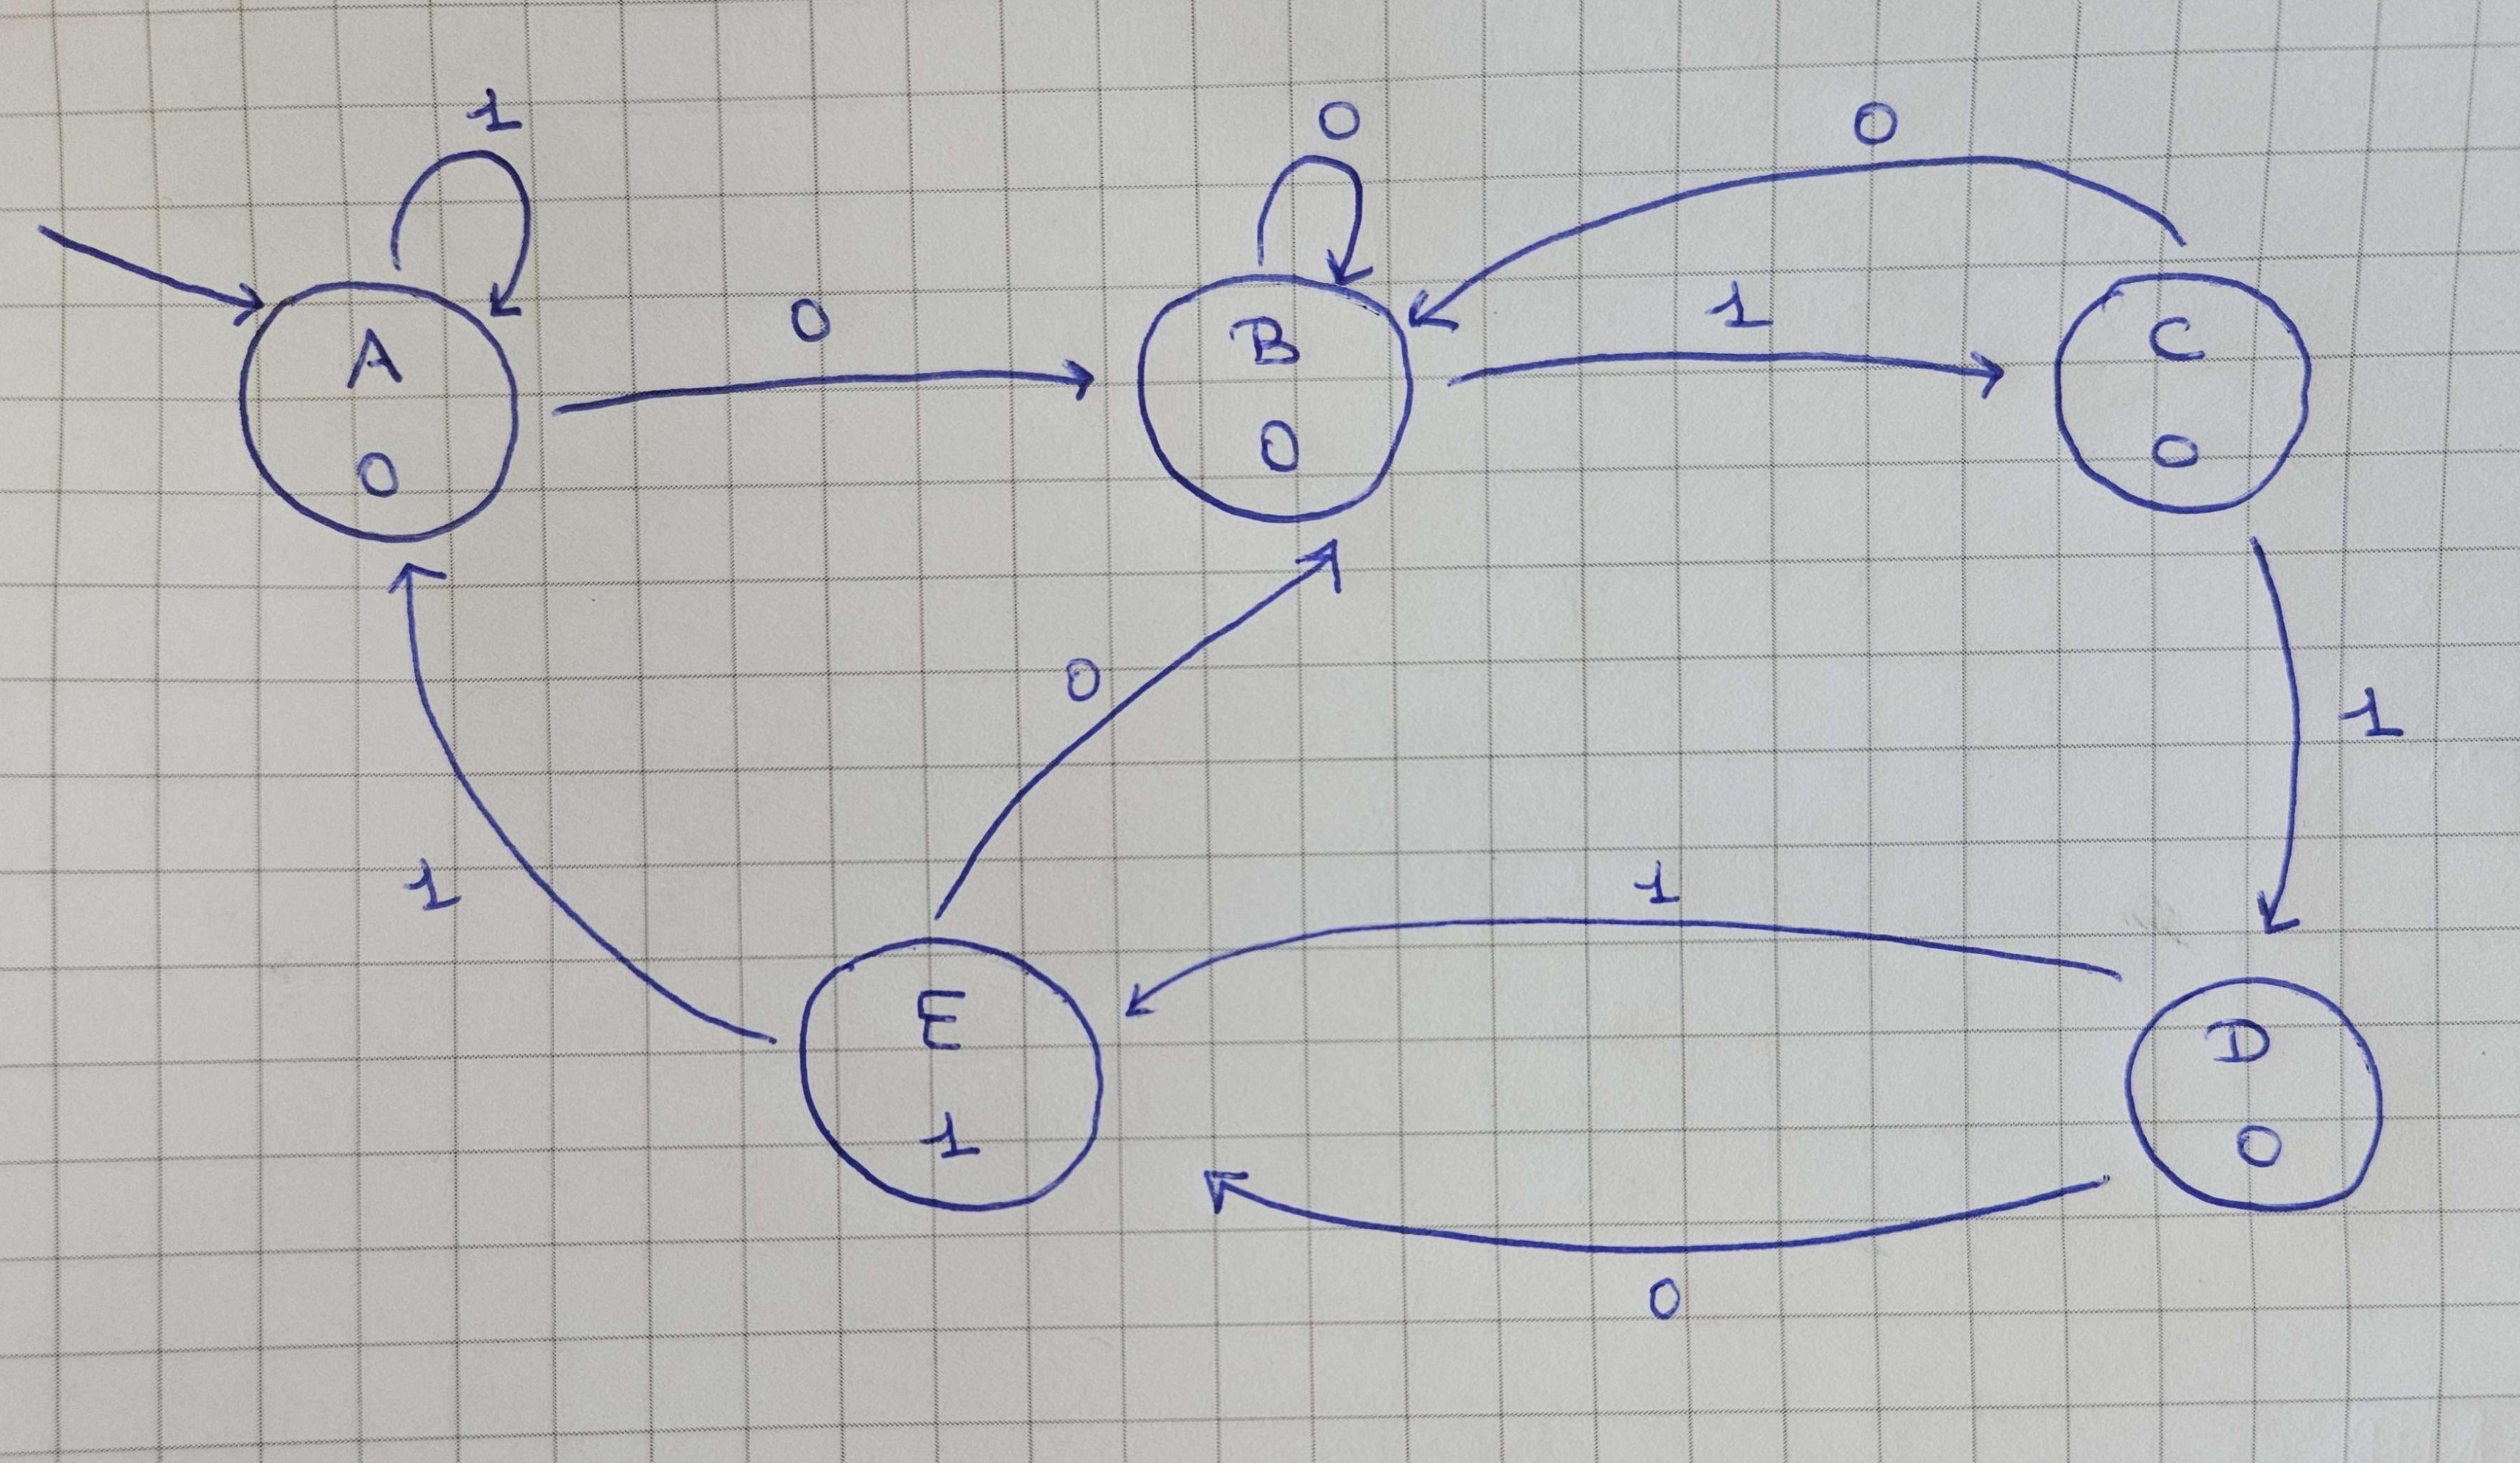 1
0
0
A
0
0
B
0
1
C
0
0
1
1
1
E
1
D
0
0